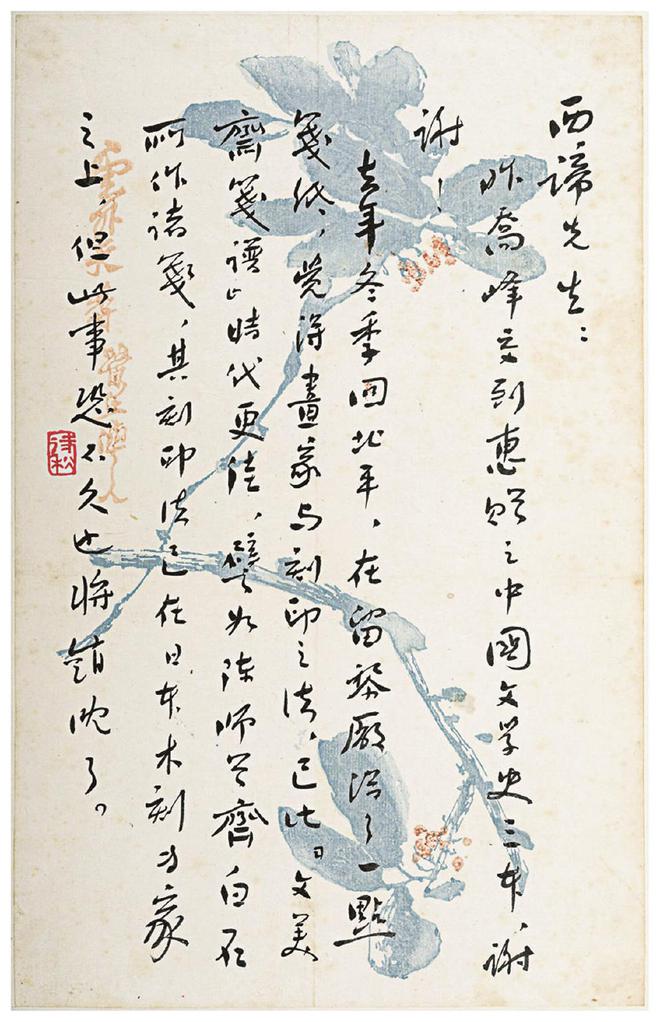 西諦先生：
昨喬峰交到惠贈之中國文学史三本，謝
謝！
去年冬季回北平，在留黎厰得了一點
箋紙，覺得畫家与刻印之法，已比「文美
齋箋譜」時代更佳，譬如陳師曾齊白石
所作諸箋，其刻印法已在日本木刻专家
之上，但此事恐不久也将銷沈了。